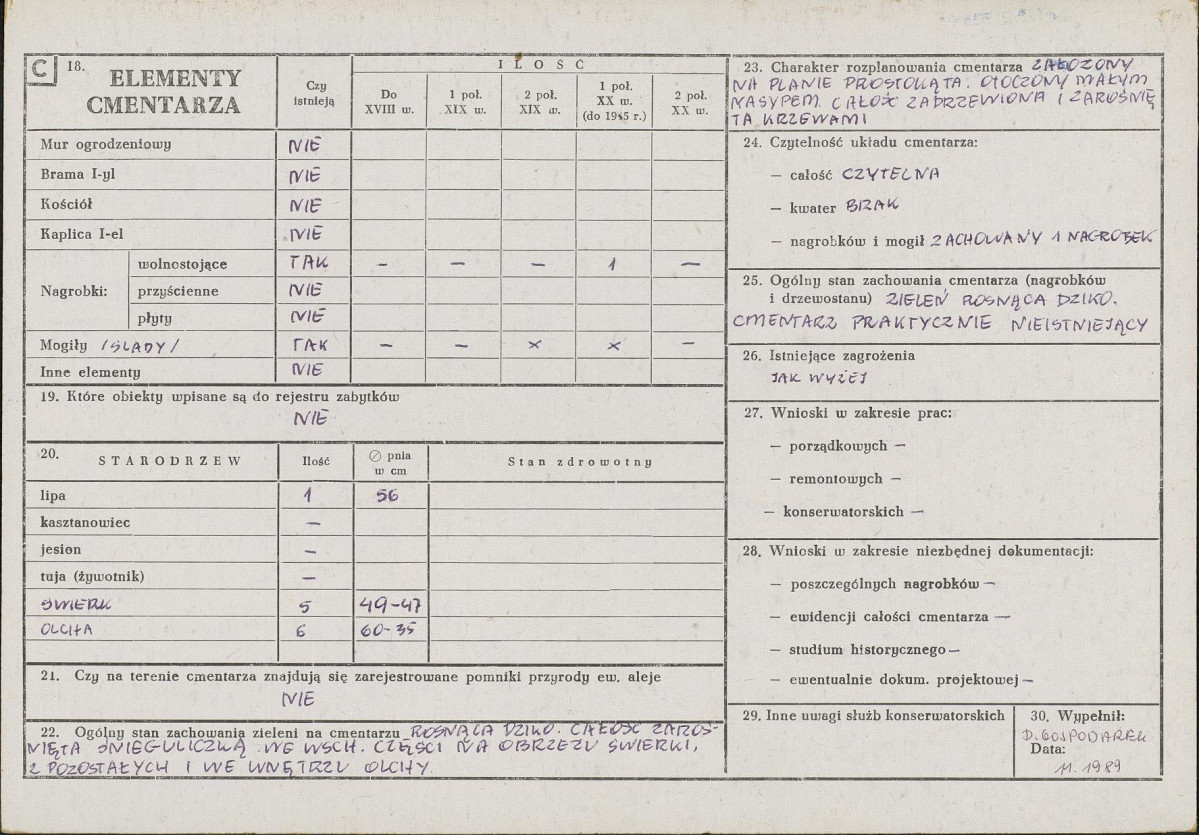 C 18. ELEMENTY CMENTARZA
Czy istnieją
ILOŚĆ
Do XVIII w.
1 poł. XIX w.
2 poł. XIX w.
1 poł. XX w. (do 1945 r.)
2 poł. XX w.
Mur ogrodzeniowy NIE
Brama I-yl NIE
Kościół NIE
Kaplica I-el NIE
Nagrobki:
wolnostojące TAK – – – 1 –
przyścienne NIE
płyty NIE
Mogiły /SLADY/ TAK – – x x –
Inne elementy NIE
19. Które obiekty wpisane są do rejestru zabytków
NIE
20. STARODRZEW Ilość ∅ pnia w cm Stan zdrowotny
lipa 1 56
kasztanowiec –
jesion –
tuja (żywotnik) –
ŚWIERK 5 49-47
OLCHA 6 60-35
21. Czy na terenie cmentarza znajdują się zarejestrowane pomniki przyrody ew. aleje
NIE
22. Ogólny stan zachowania zieleni na cmentarzu ROSNĄCA DZIKO. CAŁOŚĆ ZAROŚ-
NIĘTA ŚNIEGULICZKĄ. WE WSCH. CZĘŚCI NA OBRZEŻU ŚWIERKI,
Z POZOSTAŁYCH I WE WNĘTRZU OLCHY.
23. Charakter rozplanowania cmentarza ZAŁOŻONY
NA PLANIE PROSTOKĄTA. OTOCZONY MAŁYM
NASYPEM. CAŁOŚĆ ZADRZEWIONA I ZAROŚNIĘ
TA KRZEWAMI
24. Czytelność układu cmentarza:
– całość CZYTELNA
– kwater BRAK
– nagrobków i mogił ZACHOWANY 1 NAGROBEK
25. Ogólny stan zachowania cmentarza (nagrobków
i drzewostanu) ZIELEŃ ROSNĄCA DZIKO.
CMENTARZ PRAKTYCZNIE NIEISTNIEJĄCY
26. Istniejące zagrożenia
JAK WYŻEJ
27. Wnioski w zakresie prac:
– porządkowych –
– remontowych –
– konserwatorskich –
28. Wnioski w zakresie niezbędnej dokumentacji:
– poszczególnych nagrobków –
– ewidencji całości cmentarza –
– studium historycznego –
– ewentualnie dokum. projektowej –
29. Inne uwagi służb konserwatorskich
30. Wypełnił:
D. GOSPODAREK
Data:
11.1989